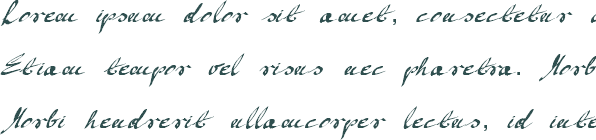 Lorem ipsum dolor sit amet, consectetur
Etiam tempor vel risus nec pharetra. Morb
Morbi hendrerit ullamcorper lectus, id inte